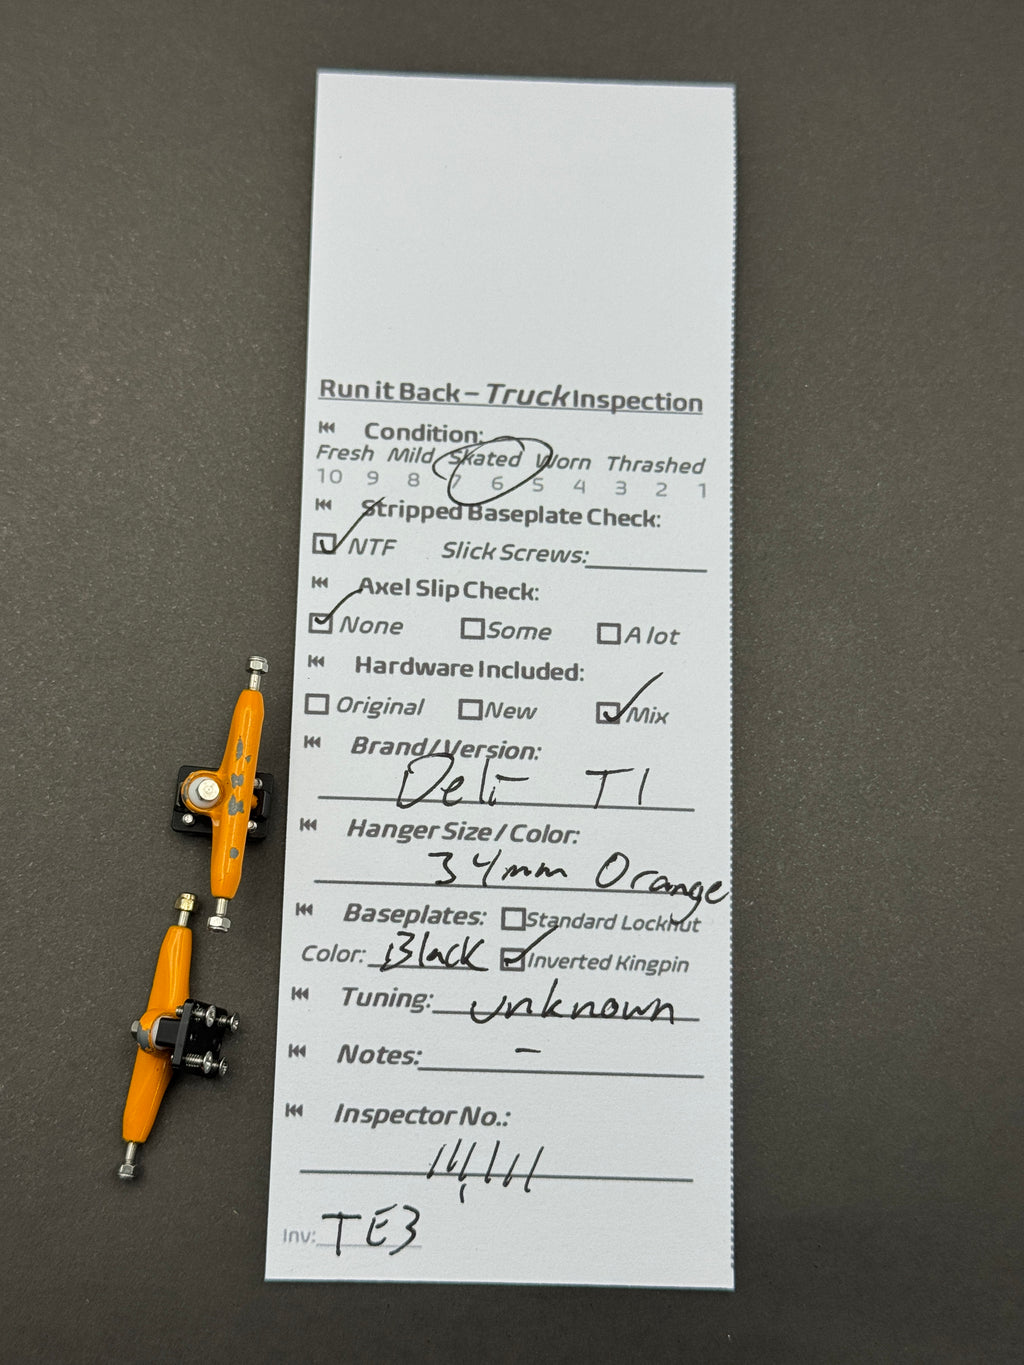 Run it Back – Truck Inspection
Condition:
Fresh Mild Skated Worn Thrashed
10 9 8 7 6 5 4 3 2 1
Stripped Baseplate Check:
NTF Slick Screws:
Axel Slip Check:
None Some A lot
Hardware Included:
Original New Mix
Brand/Version:
Deli T1
Hanger Size / Color:
34mm Orange
Baseplates: Standard Locknut
Color: Black Inverted Kingpin
Tuning: unknown
Notes: -
Inspector No.:
Inv: TE3